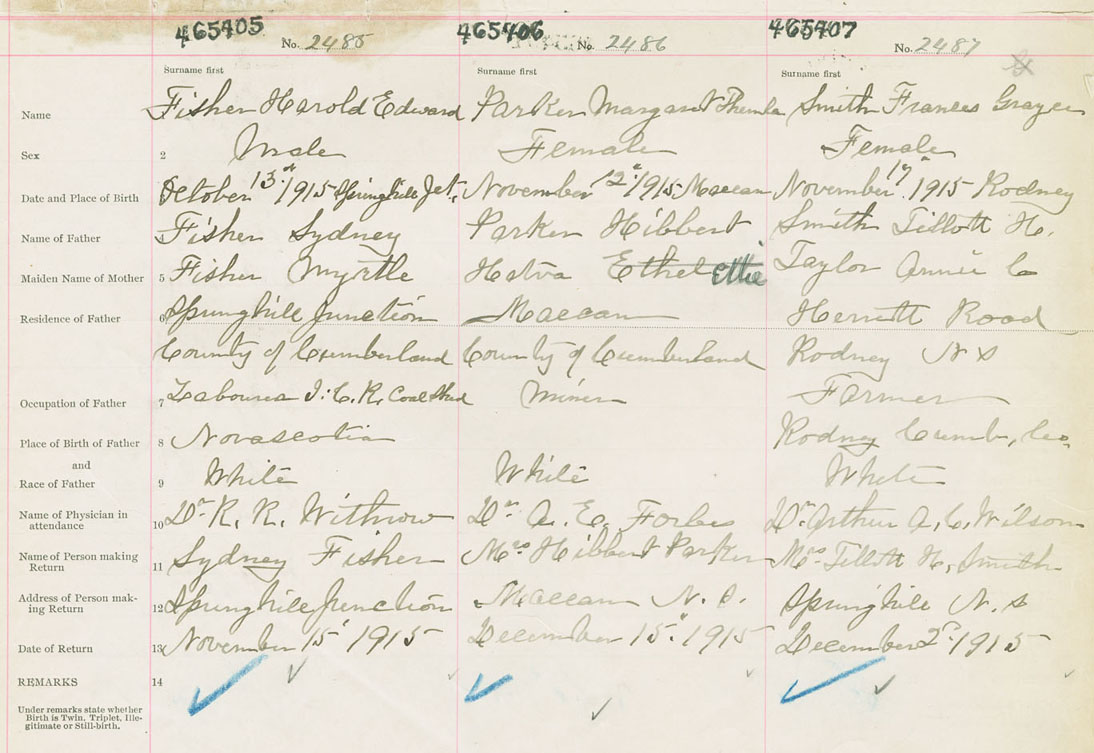 465405 465406 465407
No. 2485 No. 2486 No. 2487
Surname first Surname first Surname first
Name Fisher Harold Edward Parker Margaret Smith Frances
Sex 2 Male Female Female
Date and Place of Birth October 13th 1915 Springhill Jct. November 12th 1915 Maccan November 17th 1915 Rodney
Name of Father Fisher Sydney Parker Hibbert Smith Tillott H.
Maiden Name of Mother 5 Fisher Myrtle Hatva Ethel Ettie Taylor Annie C
Residence of Father 6 Springhill Junction Maccan Herrett Road
County of Cumberland County of Cumberland Rodney N S
Occupation of Father 7 Labourer I.C.R. Coal Shed Miner Farmer
Place of Birth of Father 8 Novascotia Rodney Cumb, Co.
and
Race of Father 9 White White White
Name of Physician in
attendance 10 Dr R. R. Withrow Dr A. E. Forbes Dr Arthur A. C. Wilson
Name of Person making
Return 11 Sydney Fisher Mrs Hibbert Parker Mrs Tillott H. Smith
Address of Person mak-
ing Return 12 Springhill Junction Maccan N. S. Springhill N. S
Date of Return 13 November 15 1915 December 15 1915 December 2 1915
REMARKS 14
Under remarks state whether
Birth is Twin, Triplet, Ille-
gitimate or Still-birth.